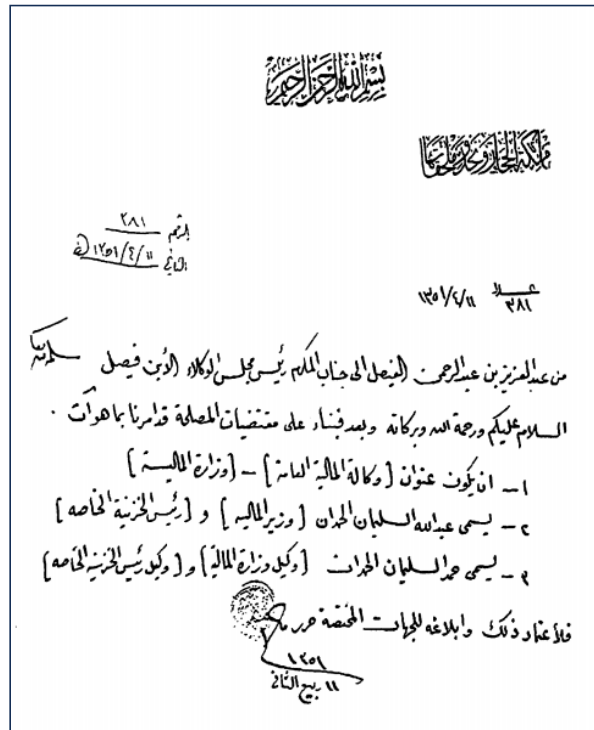 بسم الله الرحمن الرحيم
مملكة الحجاز ونجد وملحقاتها
الرقم ٣٨١
التاريخ ١٣٥١/٤/١١
عدد ٣٨١ ١٣٥١/٤/١١
من عبدالعزيز بن عبدالرحمن الفيصل الى جناب المكرم رئيس مجلس الوكلاء الأبن فيصل سلمه الله
السلام عليكم ورحمة الله وبركاته وبعد فبناء على مقتضيات المصلحة قد امرنا بما هو آت .
١ – ان يكون عنوان [وكالة المالية العامة] – [وزارة المالية]
٢ – يسمى عبدالله السليمان الحمدان [وزير الماليه] و [رئيس الخزينة الخاصه]
٣ – يسمى حمد السليمان الحمدان [وكيل وزارة المالية] و [وكيل رئيس الخزينة الخاصه]
فلأعتماد ذلك وابلاغه للجهات المختصة حرر
١٣٥١
١١ ربيع الثاني